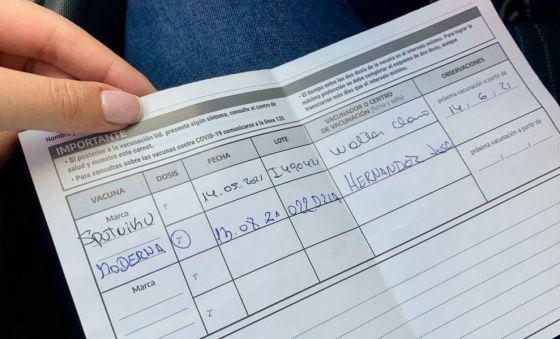 Nombre
IMPORTANTE
• Si posterior a la vacunación Ud. presenta algún síntoma, consulte al centro de
salud y muestre este carnet.
• Para consultas sobre las vacunas contra COVID-19 comunicarse a la línea 120.
• El tiempo entre las dos dosis de la vacuna es el intervalo mínimo. Para lograr la
máxima protección se debe completar el esquema de dos dosis, aunque
transcurran más días que el intervalo mínimo.
VACUNA DOSIS FECHA LOTE VACUNADOR O CENTRO
DE VACUNACIÓN (firma y sello) OBSERVACIONES
Marca 1° 14.05.2021 I490421 próxima vacunación a partir de
Sputnik V 14.6.21
MODERNA 2° 13.08.21 022D21A HERNANDEZ José próxima vacunación a partir de
Marca 1°
2°